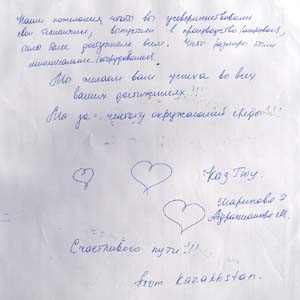 Наши пожелания, чтобы вы усовершенствовали
свои технологии, выпустили в производство (мировое),
было более доступным всем. Чтобы размеры были
минимальные (оборудования).
Мы желаем вам успеха во всех
ваших достижениях!!!
Мы за чистоту окружающей среды!!!
КазГЮУ.
Шарипова Э
Адрахманова М.
Счастливого пути!!!
from Kazakhstan.